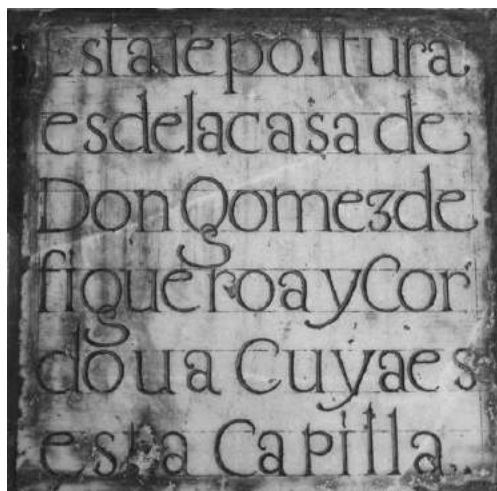 Esta sepoltura
es de la casa de
Don Gomez de
figueroa y Cor
doua Cuya es
esta Capilla.